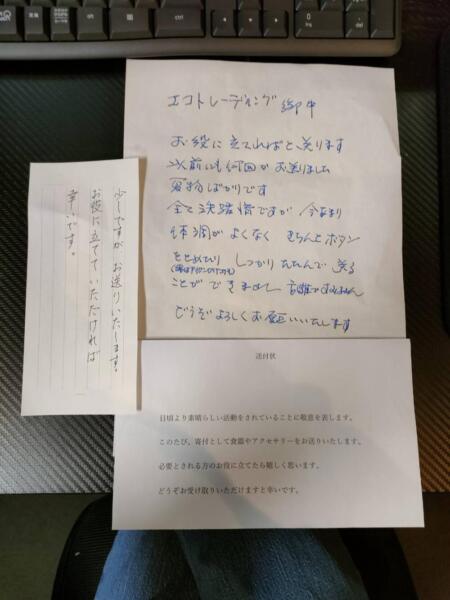 エコトレーディング 御中
お役に立てればと送ります
以前にも何回かお送りしました
夏物ばかりです
全て洗濯済ですが 今あまり
体調がよくなく きちんとボタン
をとめたり しっかりたたんで 送る
ことができませし
どうぞよろしくお願いいたします
少しですが お送りいたします。
お役に立てていただければ
幸いです。
送付状
日頃より素晴らしい活動をされていることに敬意を表します。
このたび、寄付として食器やアクセサリーをお送りいたします。
必要とされる方のお役に立てたら嬉しく思います。
どうぞお受け取りいただけますと幸いです。